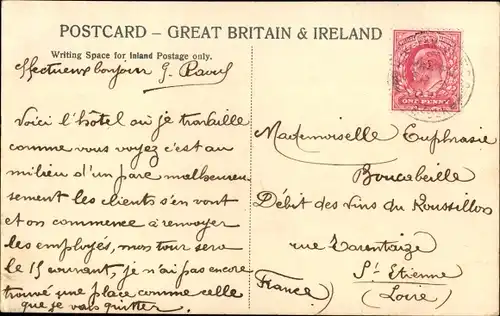 POSTCARD – GREAT BRITAIN & IRELAND
Writing Space for Inland Postage only.
bonjour G.
Voici l'hôtel où je travaille
comme vous voyez c'est au
milieu d'un parc malheureu
sement les clients s'en vont
et on commence à renvoyer
les employés, mon tour sera
le 15 courant, je n'ai pas encore
trouvé une place comme celle
que je vais quitter
ONE PENNY
Mademoiselle Euphrasie
Boucabeille
Débit des Vins du Roussillon
rue Tarentaize
St Etienne
(Loire)
France)